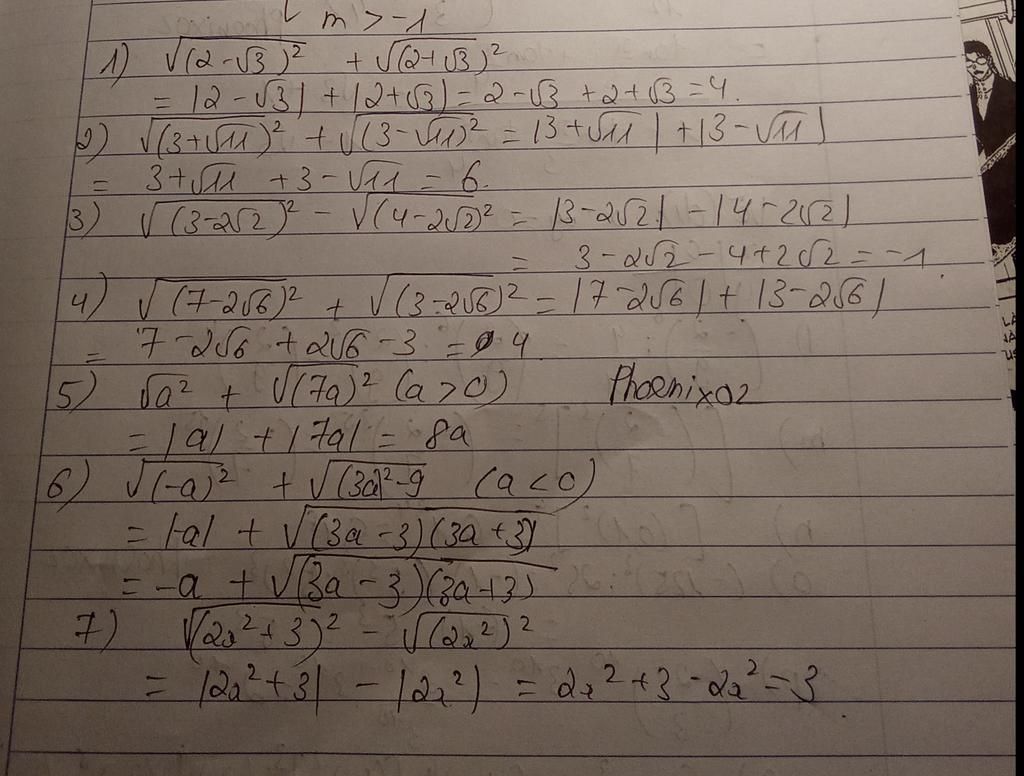 m > -1
1) √(2-√3)² + √(2+√3)²
= |2-√3| + |2+√3| = 2-√3 +2+√3 = 4.
2) √(3+√11)² + √(3-√11)² = |3+√11| + |3-√11|
= 3+√11 +3-√11 = 6.
3) √(3-2√2)² - √(4-2√2)² = |3-2√2| - |4-2√2|
= 3-2√2 - 4+2√2 = -1.
4) √(7-2√6)² + √(3-2√6)² = |7-2√6| + |3-2√6|
= 7-2√6 +2√6-3 = 4
5) √a² + √(7a)² (a > 0) Phoenix02
= |a| + |7a| = 8a
6) √(-a)² + √(3a)²-9 (a < 0)
= |-a| + √(3a-3)(3a+3)
= -a + √(3a-3)(3a+3)
7) √(2a²+3)² - √(2a²)²
= |2a²+3| - |2a²| = 2a²+3-2a² = 3